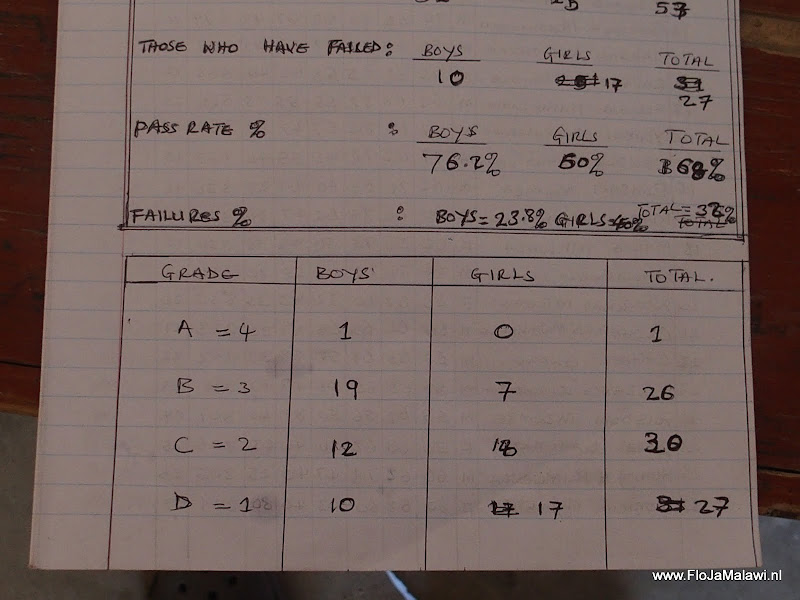 57
THOSE WHO HAVE FAILED: BOYS GIRLS TOTAL
10 17 27
PASS RATE % : BOYS GIRLS TOTAL
76.2% 60% 68%
FAILURES % : BOYS = 23.8% GIRLS = 40% TOTAL = 32%
TOTAL
GRADE BOYS GIRLS TOTAL.
A = 4 1 0 1
B = 3 19 7 26
C = 2 12 18 30
D = 1 10 17 17 27
www.FloJaMalawi.nl